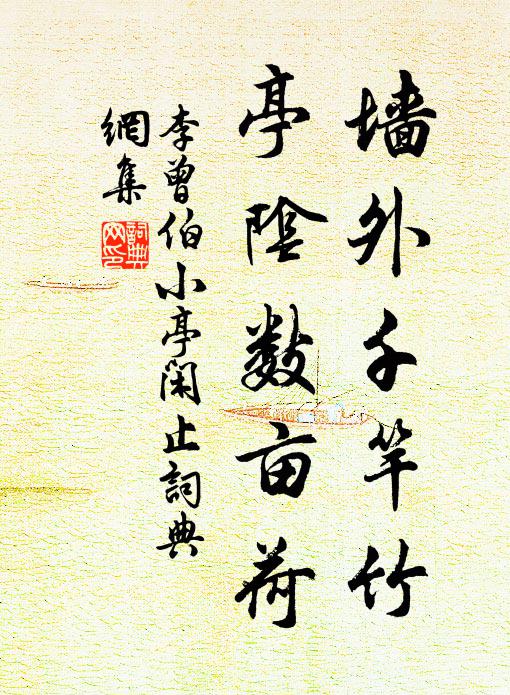 墙外千竿竹
亭陰数亩荷
李曾伯小亭闲止詞典
網集
詞典
网印